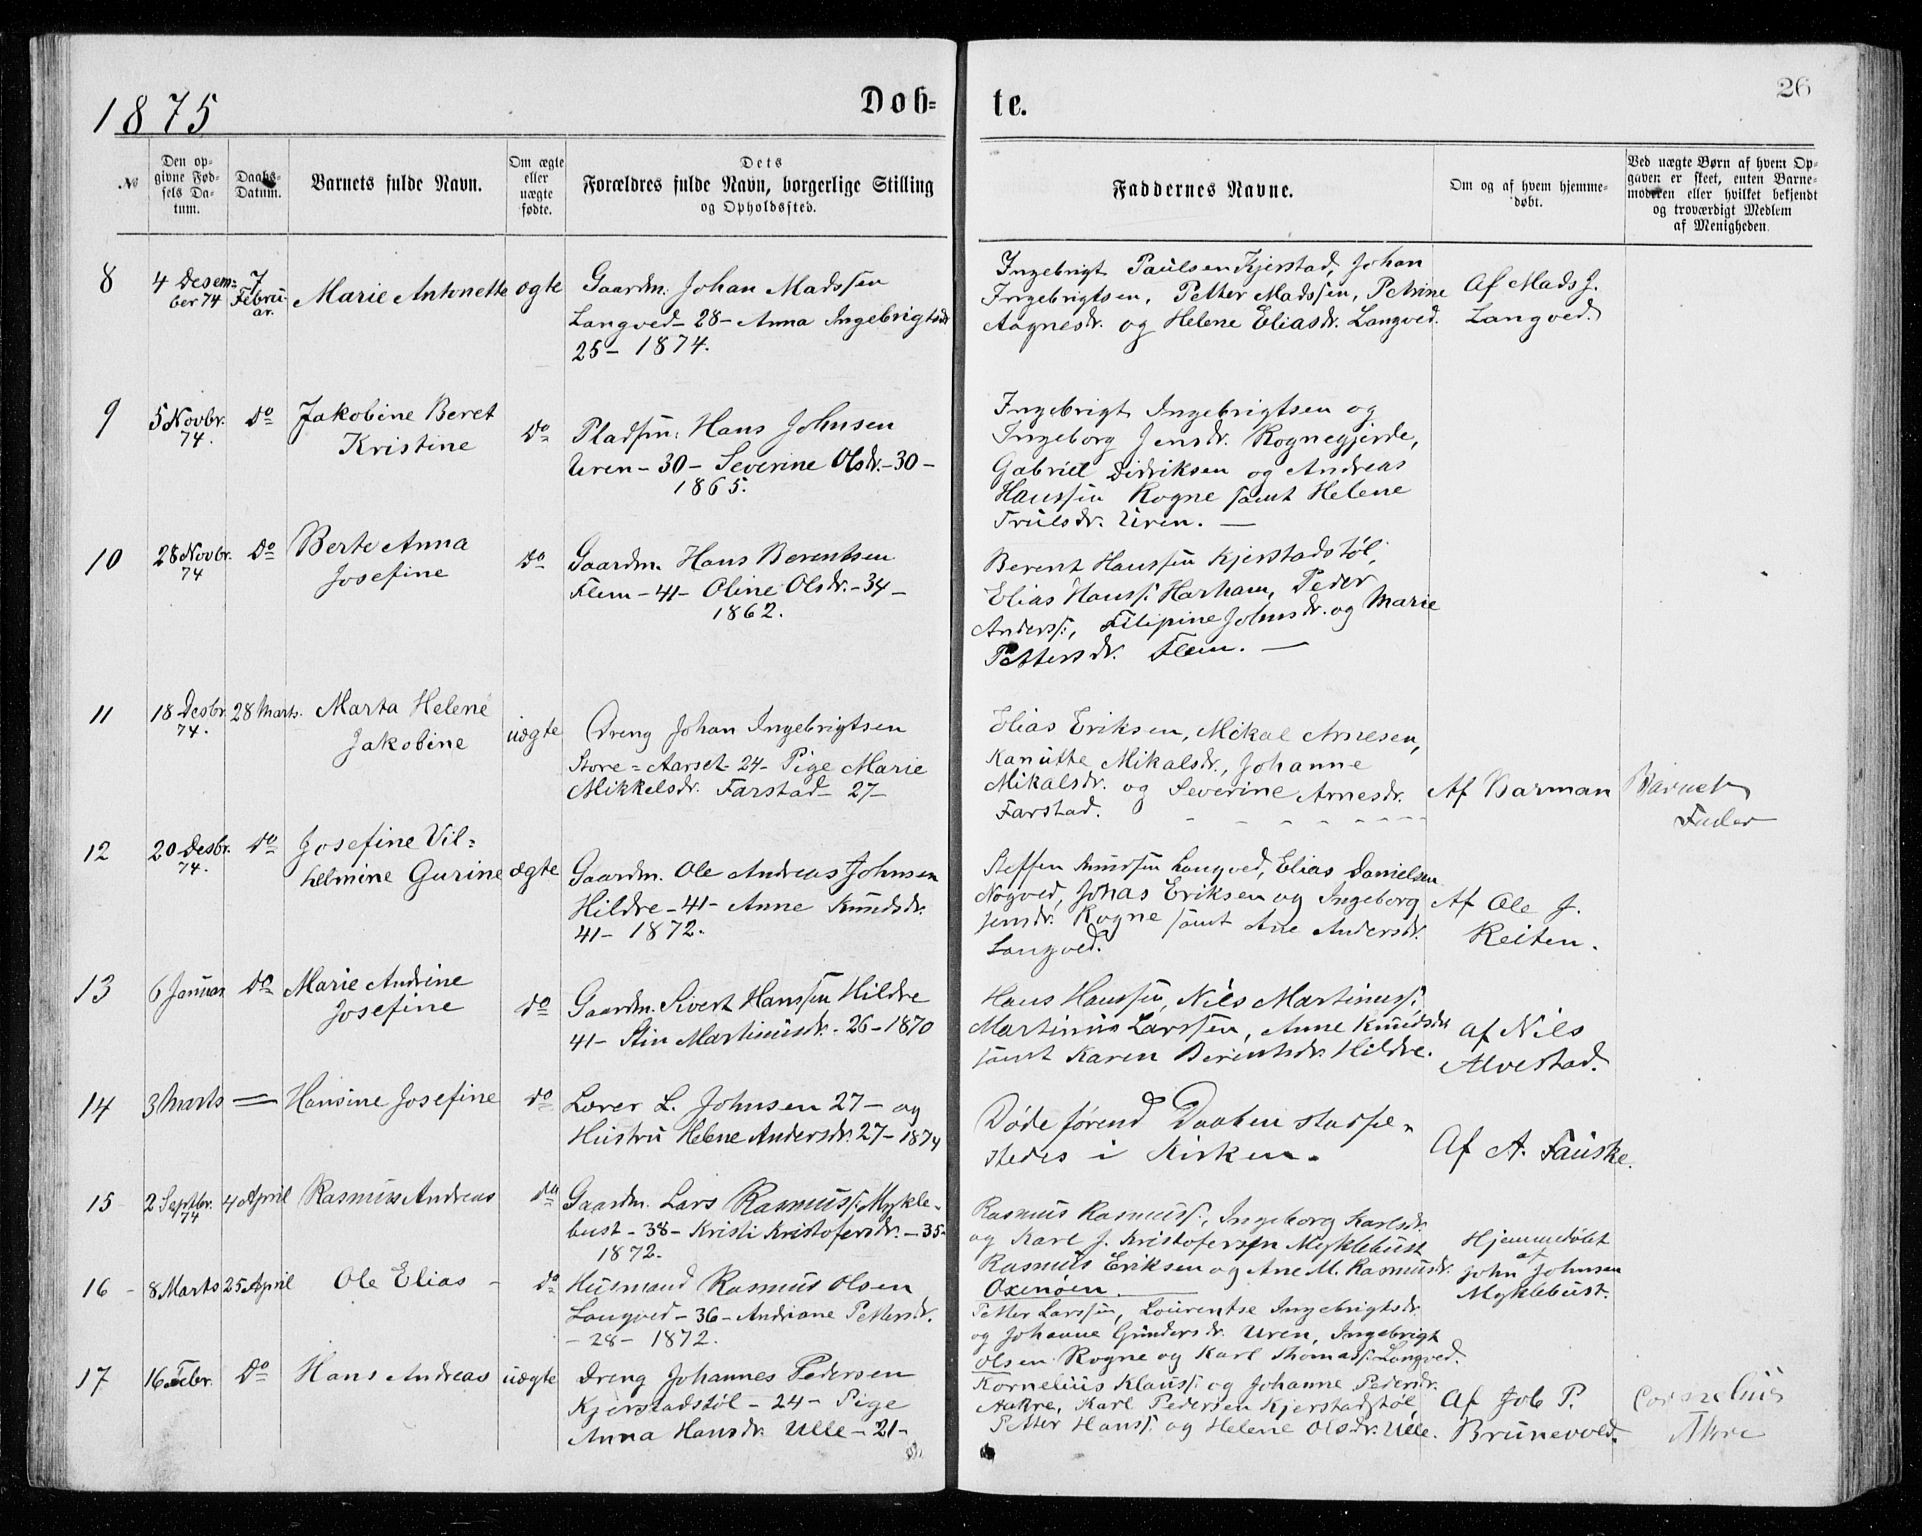 1875
Døb=
te.
26
№
Den op-
givne Fød-
sels Da-
tum.
Daabs-
Datum.
Barnets fulde Navn.
Om ægte
eller
uægte
fødte.
Dets
Forældres fulde Navn, borgerlige Stilling
og Opholdssted.
Faddernes Navne.
Om og af hvem hjemme-
døbt.
Ved uægte Børn af hvem Op-
gaven er skeet, enten Barne-
moderen eller hvilket bekjendt
og troværdigt Medlem
af Menigheden.
8
4 Desem=
ber 74
7
Febru
ar.
Marie Antonette
ægte
Gaardm. Johan Madssen
Langved - 28 - Anna Ingebrigtsdr
25 - 1874.
Ingebrigt Paulsen Kjerstad, Johan
Ingebrigtsen, Petter Madssen, Petrine
Aagnesdr. og Helene Eliasdr. Langved.
Af Mads J.
Langved.
9
5 Novbr.
74.
Do
Jakobine Beret
Kristine
Do
Pladsm: Hans Johnsen
Uren - 30 - Severine Olsdr. - 30 -
1865.
Ingebrigt Ingebrigtsen og
Ingeborg Jensdr. Rognegjerde,
Gabriel Didriksen og Andreas
Hanssen Rogne samt Helene
Trulsdr. Uren. -
10
28 Novbr.
74
Do
Berte Anna
Josefine
Do
Gaardm. Hans Berentsen
Flem - 41 - Oline Olsdr. - 34 -
1862.
Berent Hanssen Kjerstadstøl,
Elias Hanss: Harham, Peder
Anderss:, Filipine Johnsdr. og Marie
Pettersdr. Flem. -
11
18 Desbr.
74.
28 Marts.
Marta Helene
Jakobine
uægte
Dreng Johan Ingebrigtsen
Store = Aarset - 24 - Pige Marie
Mikkelsdr. Farstad - 27 -
Elias Eriksen, Mikal Arnesen,
Kanutte Mikalsdr., Johanne
Mikalsdr. og Severine Arnesdr.
Farstad.
Af Barman
Barnets
Fader
12
20 Desbr.
74.
Do
Josefine Vil=
helmine Gurine
ægte
Gaardm. Ole Andreas Johnsen
Hildre - 41 - Anne Knudsdr.
41 - 1872.
Steffen Knudsen Langved, Elias Danielsen
Nogved, Jonas Eriksen og Ingeborg
Jensdr. Rogne samt Ane Andersdr.
Langved.
Af Ole J.
Reiten.
13
6 Januar
Do
Marie Andrine
Josefine
Do
Gaardm. Sivert Hanssen Hildre
41 - Stin Martinusdr. - 26 - 1870
Hans Hanssen, Nils Martinuss:
Martinus Larssen, Anne Knudsdr
samt Karen Berentsdr. Hildre.
af Nils
Alvestad.
14
3 Marts
=
Hansine Josefine
do
Lærer L. Johnsen 27 - og
Hustru Helene Andersdr. 27 - 1874
Døde førend Daaben stadfæ-
stedes i Kirken.
Af A. Fauske.
15
2 Septbr.
74
4 April
Rasmus Andreas
do
Gaardm. Lars Rasmuss: Mykle-
bust - 38 - Kristi Kristofersdr. - 35 -
1872.
Rasmus Rasmuss:, Ingeborg Karlsdr.
og Karl J. Kristofersen Myklebust
Rasmus Eriksen og Ane M. Rasmusdr.
Oxenøen.
Hjemmedøbt
af
John Johnsen
Myklebust.
16
8 Marts
25 April
Ole Elias -
do
Husmand Rasmus Olsen
Langved - 36 - Andriane Pettersdr.
- 28 - 1872.
Petter Larssen, Lourentse Ingebrigtsdr.
og Johanne Gundersdr. Uren, Ingebrigt
Olsen Rogne og Karl Thomass: Langved.
17
16 Febr.
Do
Hans Andreas
uægte
Dreng Johannes Pedersen
Kjerstadstøl - 24 - Pige
Anna Hansdr. Ulle - 21 -
Kornelius Klauss: og Johanne Pedersdr.
Aakre, Karl Pedersen Kjerstadstøl
Petter Hanss: og Helene Olsdr. Ulle.
Af Job P.
Brunevold.
Cornelius
Akre